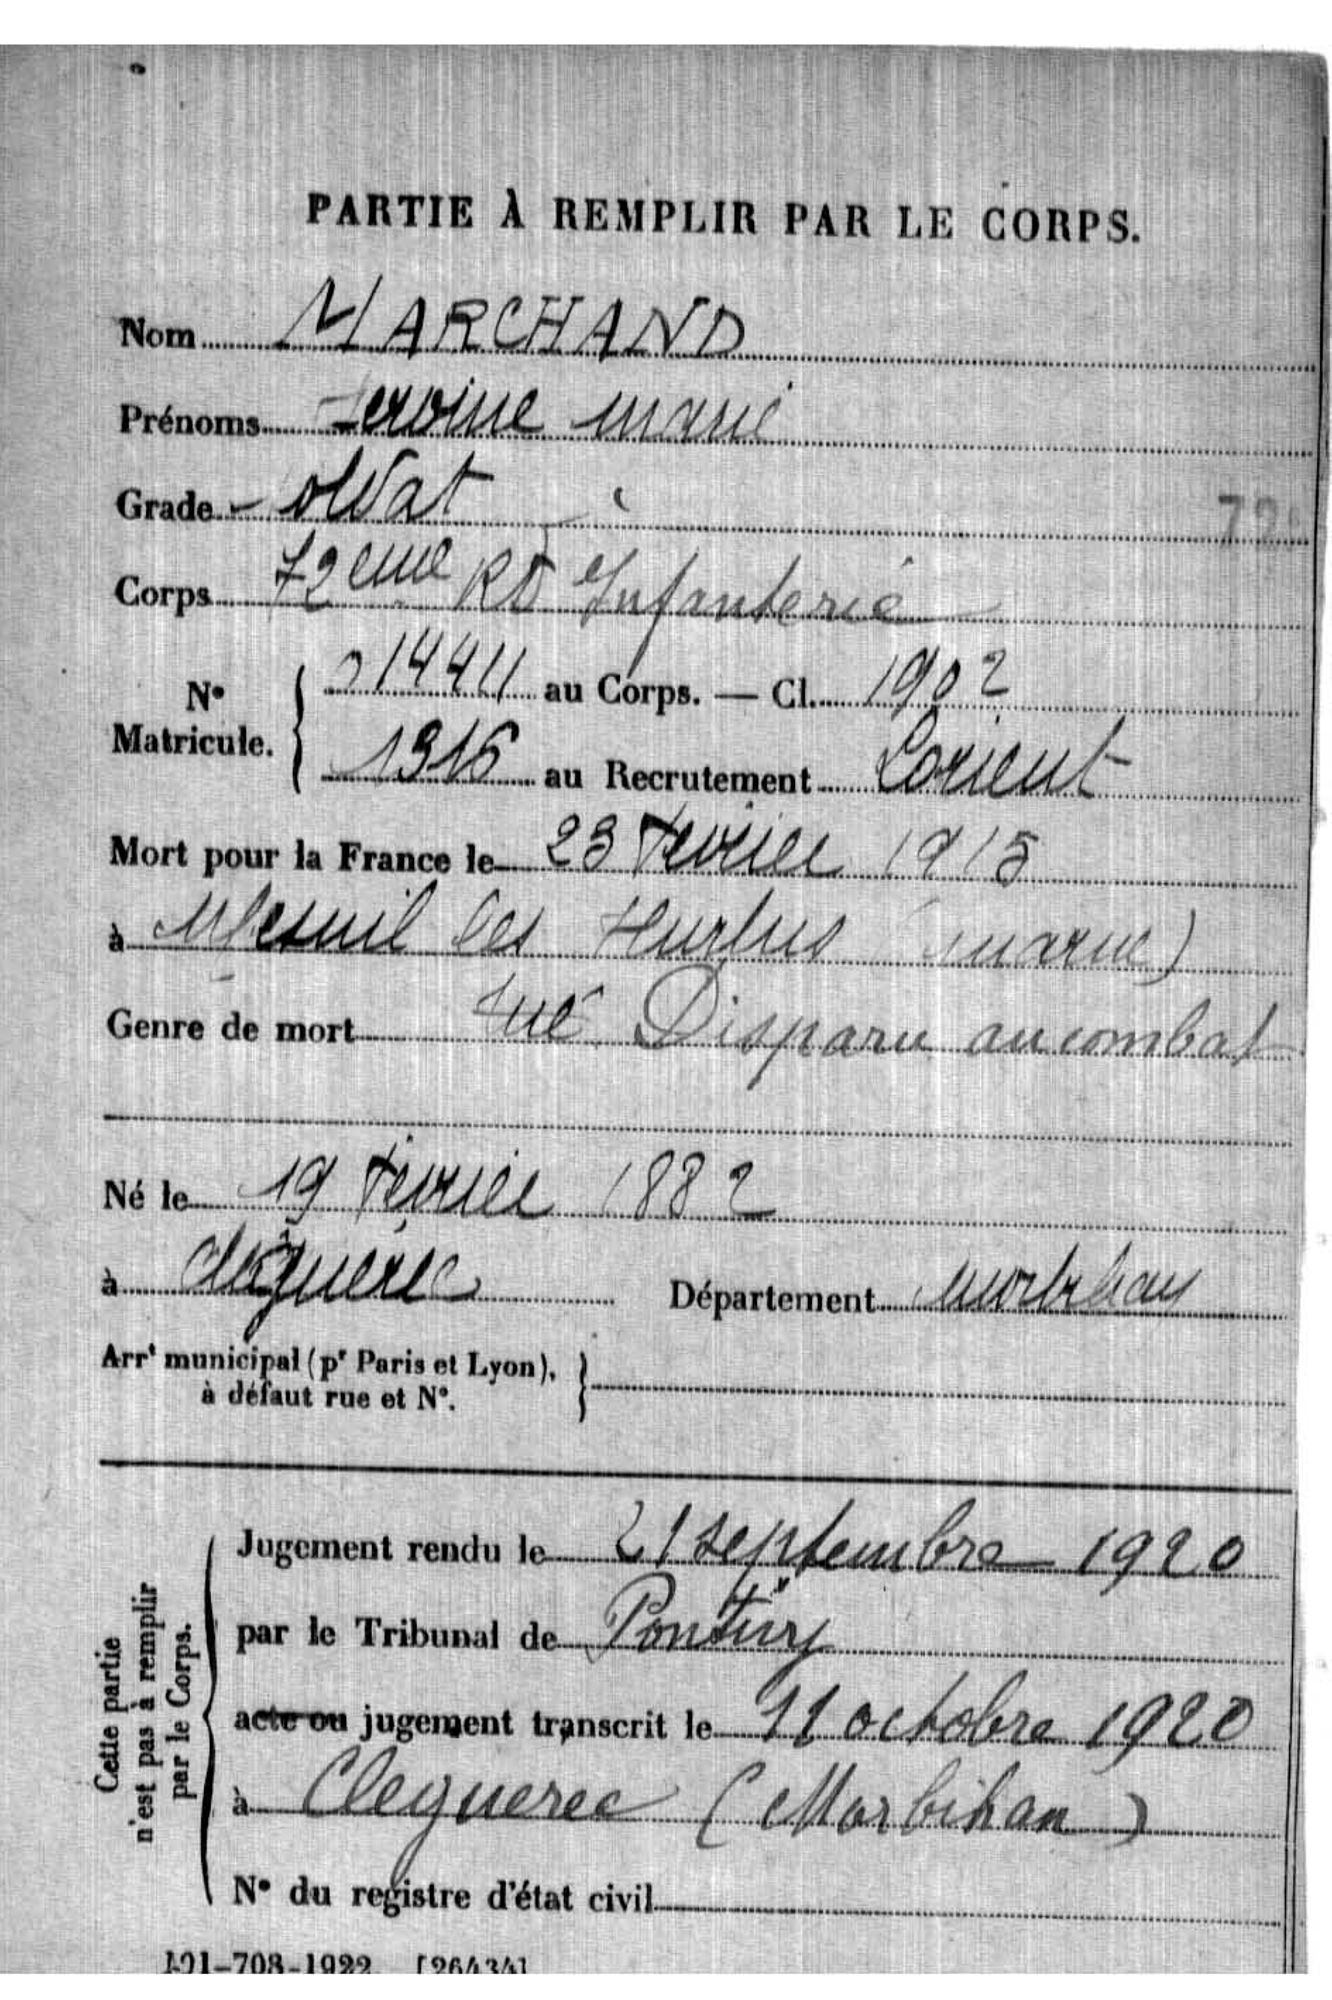 PARTIE À REMPLIR PAR LE CORPS.
Nom MARCHAND
Prénoms Jerome marie
Grade Soldat
72
Corps 72eme RD Infanterie
N° Matricule. 014411 au Corps. — Cl. 1902
1316 au Recrutement Lorient
Mort pour la France le 23 Fevrier 1915
à Mesnil les Hurlus (marne)
Genre de mort tué Disparu au combat
Né le 19 Fevrier 1882
à Cléguérec Département Morbihan
Arrt municipal (pr Paris et Lyon),
à défaut rue et N°.
Cette partie
n'est pas à remplir
par le Corps.
Jugement rendu le 21 septembre 1920
par le Tribunal de Pontivy
acte ou jugement transcrit le 11 octobre 1920
à Cleguerec (Morbihan)
N° du registre d'état civil
-708-1922. [26434]